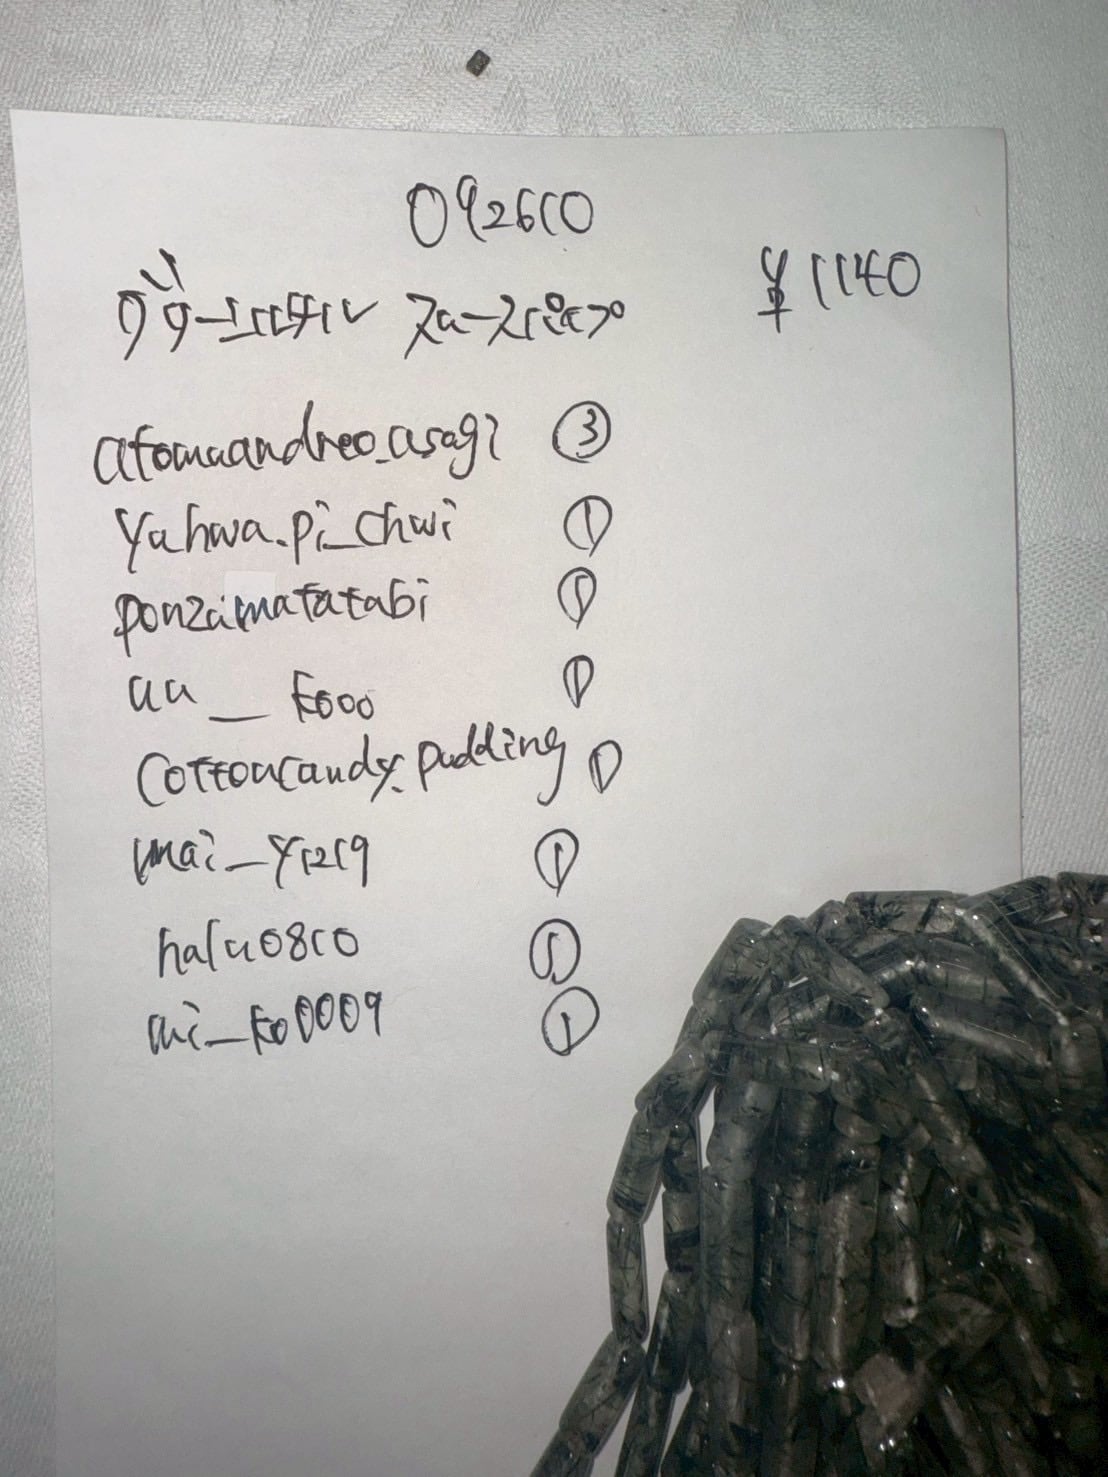 092610
¥1140
atomaandreo_asagi ③
yahwa.pi_chwi ①
ponzaimatatabi ①
aa__kooo ①
cottoncandy._pudding ①
mai_y1219 ①
halu0810 ①
mi_ko0009 ①